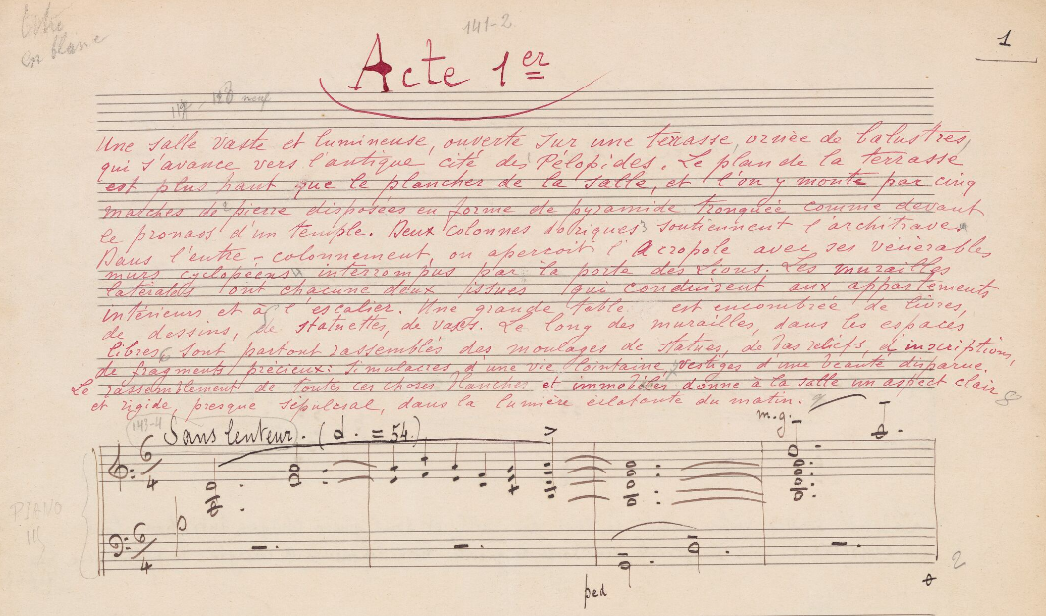 Titre
en blanc
141-2
Acte 1er
1
Une salle vaste et lumineuse, ouverte sur une terrasse, ornée de balustres,
qui s'avance vers l'antique cité des Pélopides. Le plan de la terrasse
est plus haut que le plancher de la salle, et l'on y monte par cinq
marches de pierre disposées en forme de pyramide tronquée comme devant
le pronaos d'un temple. Deux colonnes doriques soutiennent l'architrave.
Dans l'entre-colonnement, on aperçoit l'Acropole avec ses vénérables
murs cyclopéens interrompus par la porte des Lions. Les murailles
latérales ont chacune deux issues qui conduisent aux appartements
intérieurs et à l'escalier. Une grande table est encombrée de livres,
de dessins, de statuettes, de vases. Le long des murailles, dans les espaces
libres sont partout rassemblés des moulages de statues, de bas reliefs, d'inscriptions,
de fragments précieux: simulacres d'une vie lointaine, vestiges d'une beauté disparue.
Le rassemblement de toutes ces choses blanches et immobiles donne à la salle un aspect clair
et rigide, presque sépulcral, dans la lumière éclatante du matin.
143-4
Sans lenteur. (d. = 54.)
m.g.
6
4
PIANO
6
4
ped
2